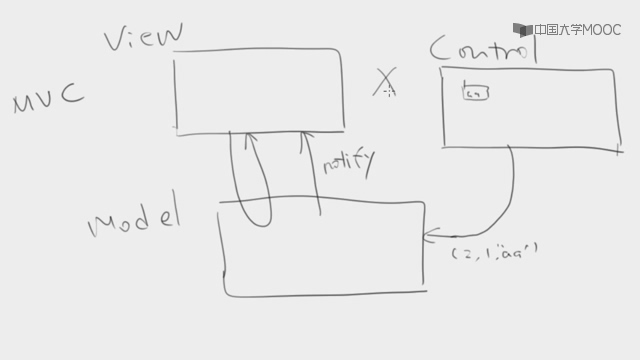 中国大学MOOC
View
Control
X
MVC
notify
Model
(2,1,"aa")